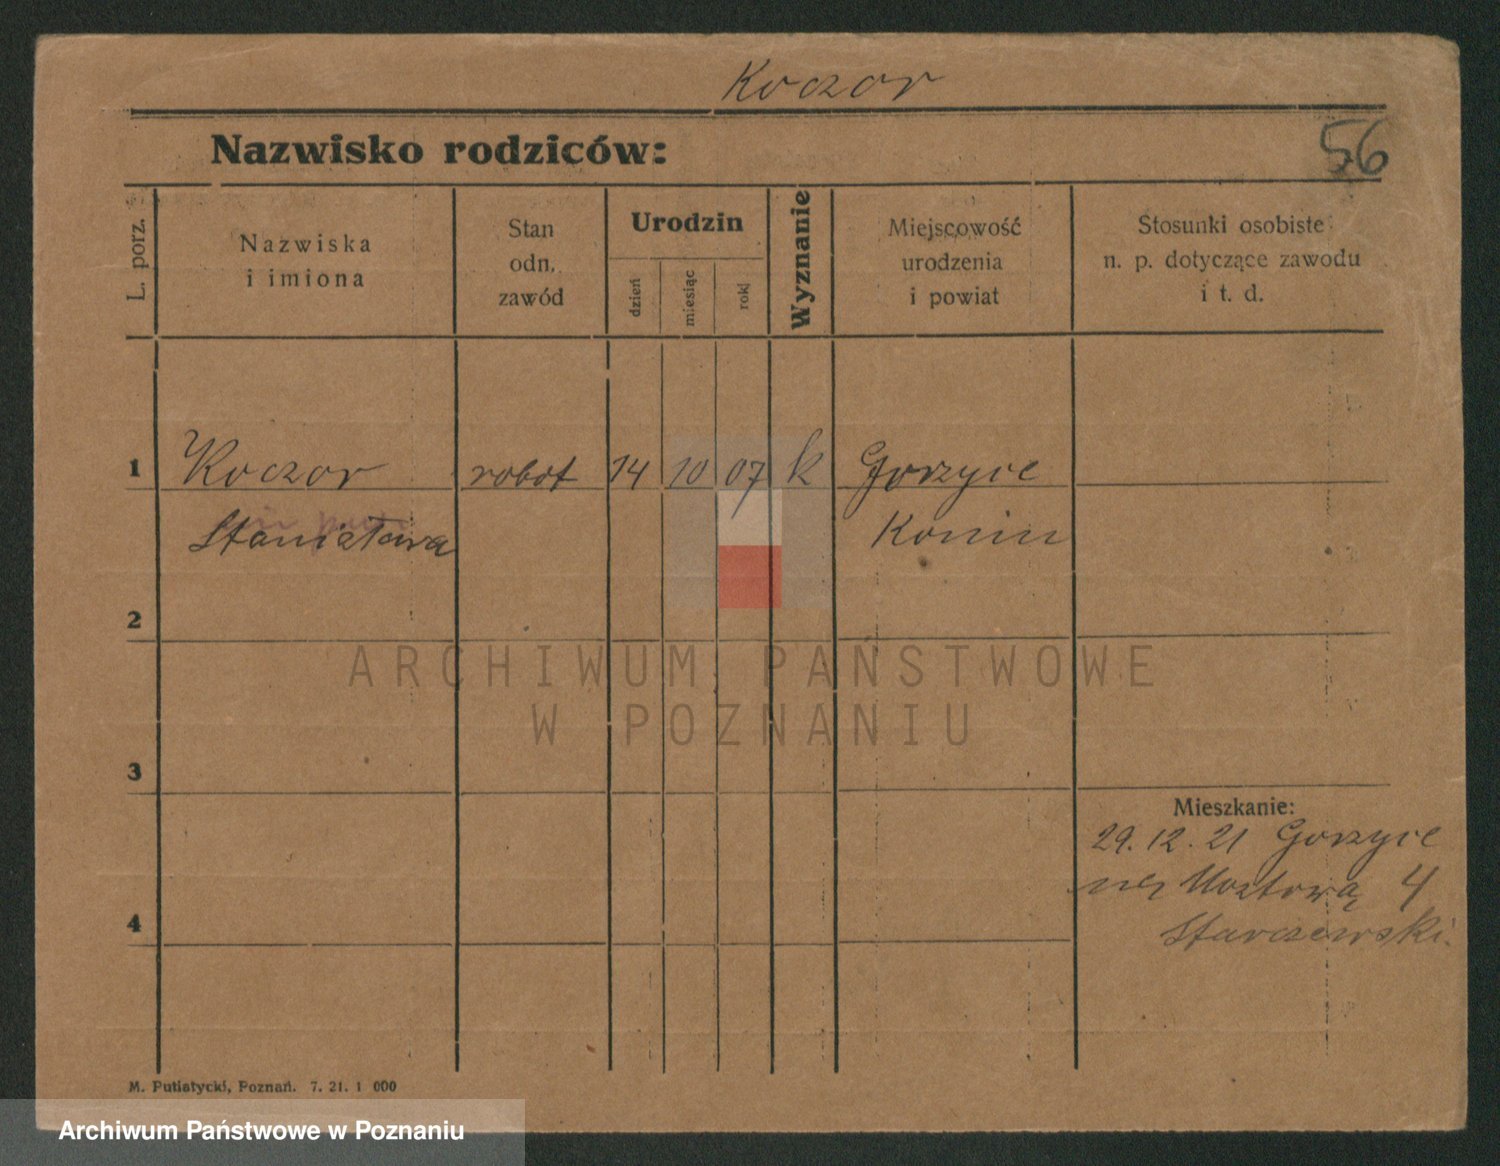 Koczor
56
Nazwisko rodziców:
L. porz.
Nazwiska
i imiona
Stan
odn.
zawód
Urodzin
dzień
miesiąc
rok
Wyznanie
Miejscowość
urodzenia
i powiat
Stosunki osobiste
n. p. dotyczące zawodu
i t. d.
1 Koczor robot 14 10 07 k Gorzyce
Stanisława Konin
2
ARCHIWUM PAŃSTWOWE
W POZNANIU
3
Mieszkanie:
29.12.21 Gorzyce
Mostową 4
4
Starczewski.
M. Putiatycki, Poznań. 7. 21. 1 000
Archiwum Państwowe w Poznaniu